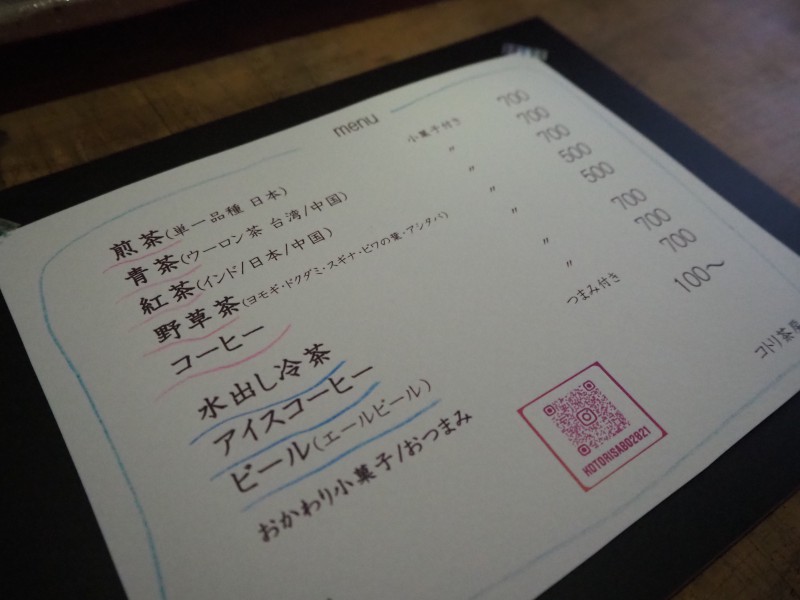 menu
煎茶(単一品種 日本) 小菓子付き 700
青茶(ウーロン茶 台湾/中国) 〃 700
紅茶(インド/日本/中国) 〃 700
野草茶(ヨモギ・ドクダミ・スギナ・ビワの葉・アシタバ) 〃 500
コーヒー 〃 500
水出し冷茶 〃 700
アイスコーヒー 〃 700
ビール(エールビール) つまみ付き 700
おかわり小菓子/おつまみ 100〜
コトリ茶房
KOTORISABO2821